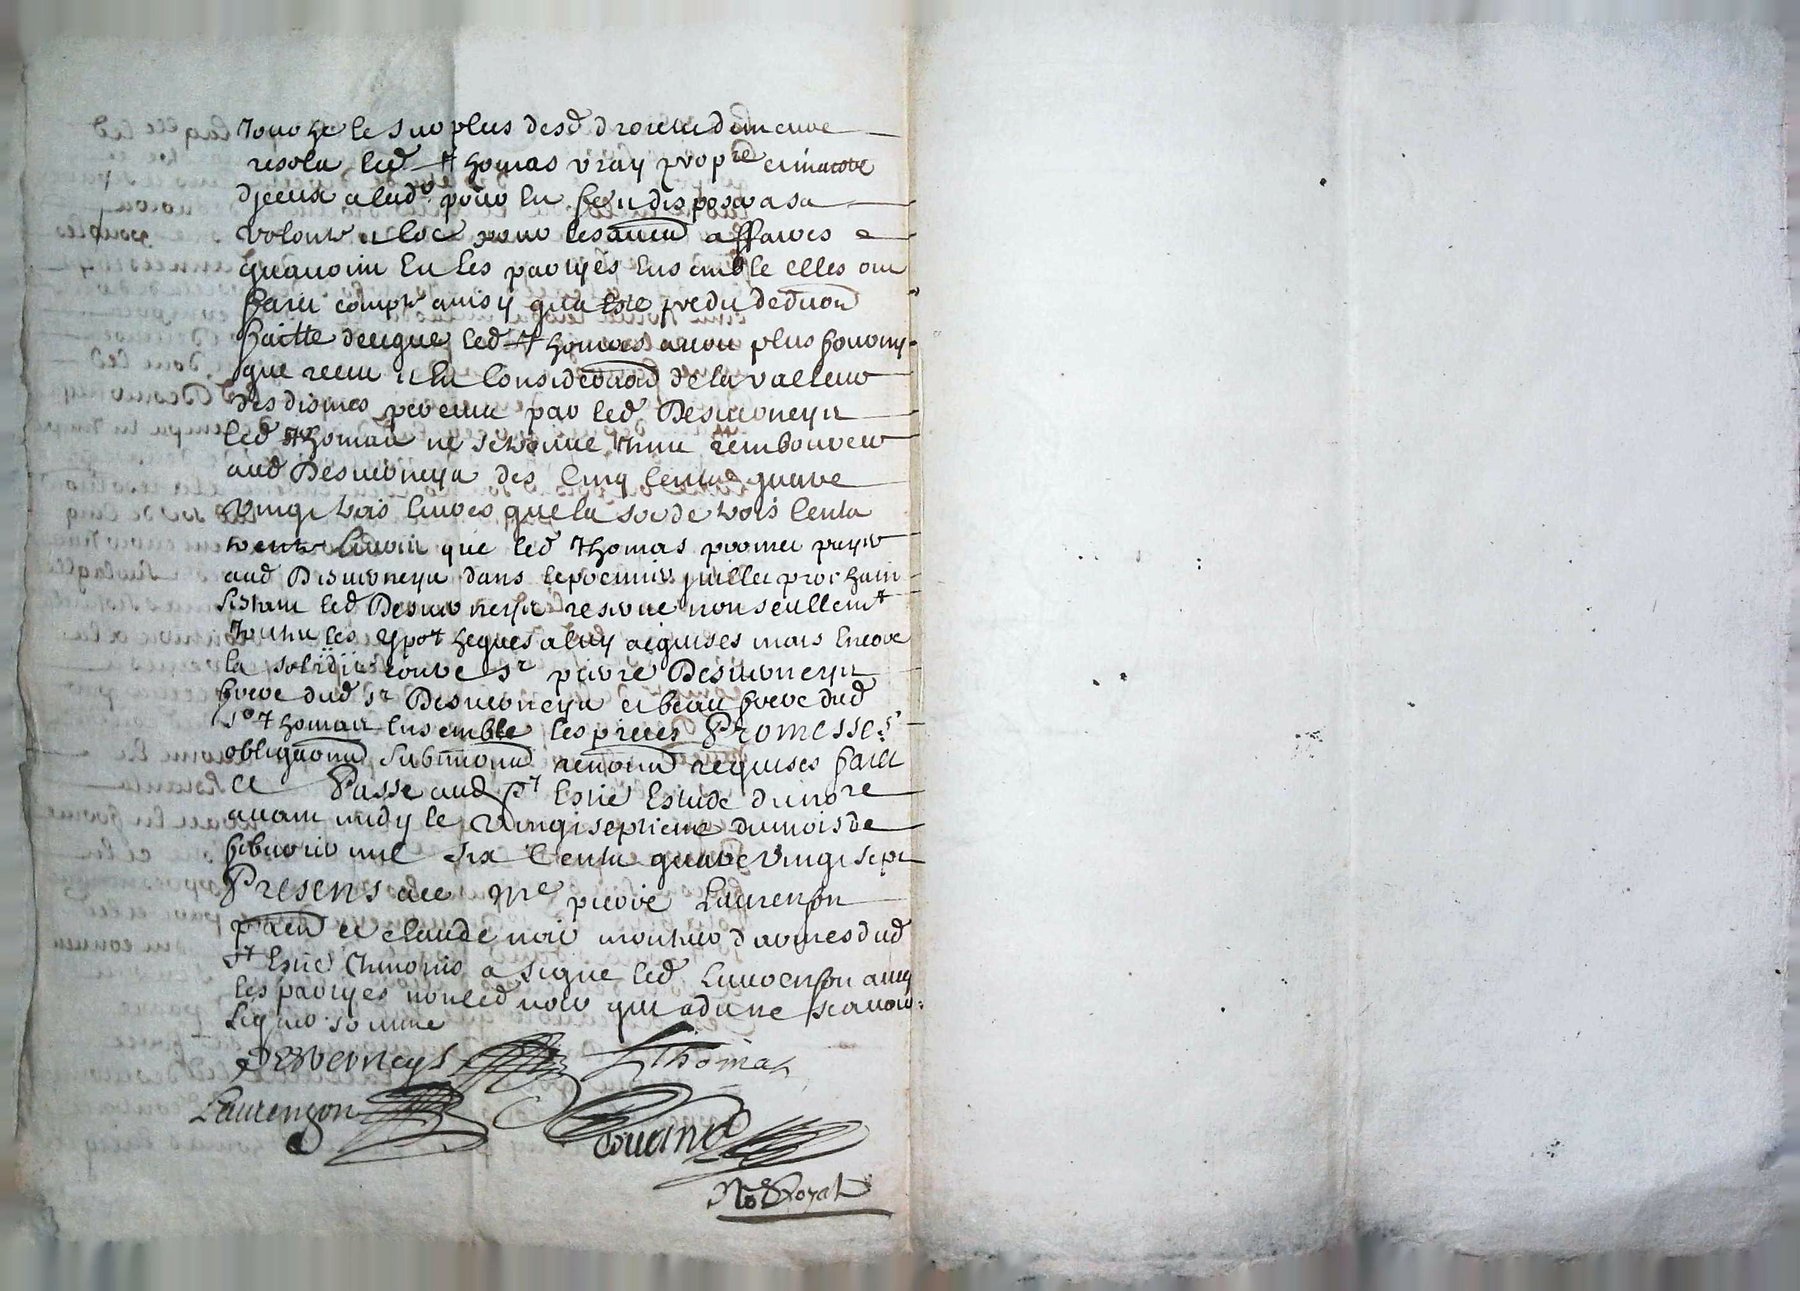 le surplus desd droictz demeure
led Thomas vray prop^re
diceux alad^e pour en fere disposer a sa
volonté et los pour les affaires
en les partyes ensemble elles ont
faict compte ainsy qua esté deduon
faitte de ce que led Thomas avoit plus fourny
que receu et en consideraon de la valleur
des dismes perceue par led Desverneys
led Thomas ne se treuve rembourcer
aud Desverneys des cinq centz quatre
vingt trois livres que la so^e de trois centz
trente livres que led Thomas promet payer
aud Desverneys dans le premier juillet prochain
led Desverneys reservé non seullem^t
les ypotheques a luy aquises mais encore
la contre s^r pierre Desverneys
frere dud s^r Desverneys et beau frere dud
s^r Thomas ensemble les Promesses
obligaons submions renons requises faict
et Passe aud s^t Estie Estude du no^re
avant midy le vingt septieme du mois de
febvrier mil six centz quatre vingt sept
Presens a ce M^e pierre Laurenson
et claude noir darmes dud
s^t Estie a signe led Laurenson avec
les partyes non led noir qui a dit ne scavoir
signer somme
Desverneys Thomas
Laurenson
No^e Royal